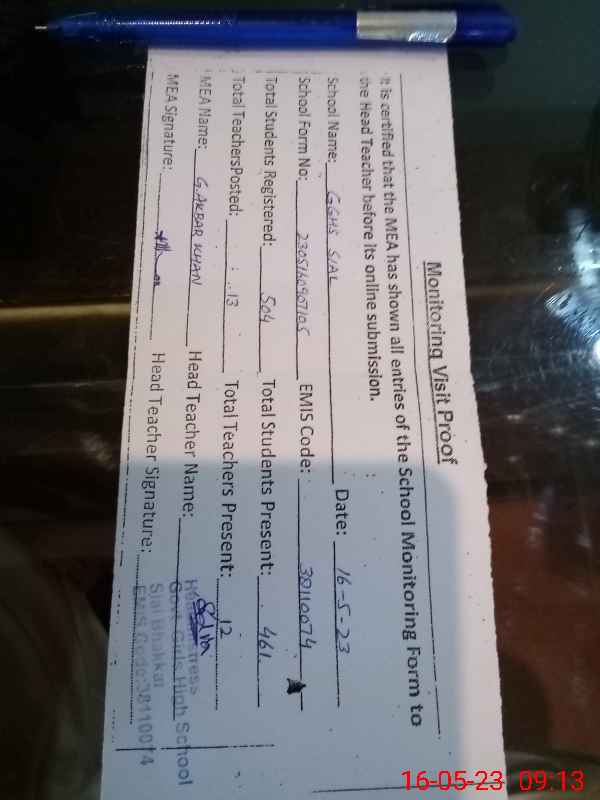 Monitoring Visit Proof
It is certified that the MEA has shown all entries of the School Monitoring Form to
the Head Teacher before its online submission.
School Name: GGHS SIAL Date: 16-5-23
School Form No: 2305160907105 EMIS Code: 38110074
Total Students Registered: 504 Total Students Present: 461
Total TeachersPosted: 13 Total Teachers Present: 12
MEA Name: G.AKBAR KHAN Head Teacher Name:
MEA Signature: Head Teacher Signature:
Govt. Girls High School
Sial Bhakkar
EMIS Code:38110074
16-05-23 09:13